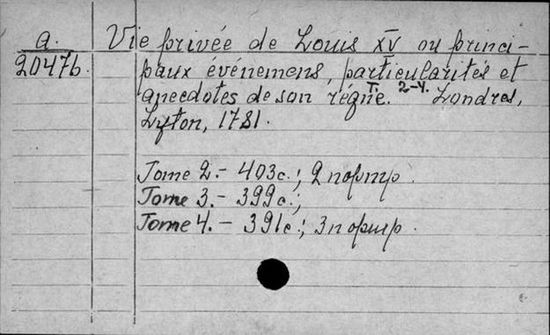 a. Vie privée de Louis XV ou princi-
20476. paux événemens, particularités et
anecdotes de son règne. T. 2-4. Londres,
Lyton, 1781.
Tome 2.- 403с.; 2 портр.
Tome 3.- 399с.;
Tome 4.- 391с.; 3 портр.